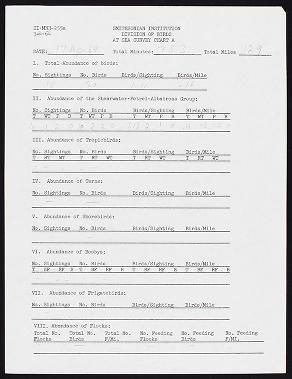 SI-MNH-955a
3-4-64
SMITHSONIAN INSTITUTION
DIVISION OF BIRDS
AT SEA SURVEY CHART A
DATE: Total Minutes: Total Miles 129
I. Total Abundance of birds:
No. Sightings No. Birds Birds/Sighting Birds/Mile
II. Abundance of the Shearwater-Petrel-Albatross Group:
No. Sightings No. Birds Birds/Sighting Birds/Mile
T WT P B T WT P B T WT P B T WT P B
III. Abundance of Tropicbirds:
No. Sightings No. Birds Birds/Sighting Birds/Mile
T RT WT T RT WT T RT WT T RT WT
IV. Abundance of Terns:
No. Sightings No. Birds Birds/Sighting Birds/Mile
V. Abundance of Shorebirds:
No. Sightings No. Birds Birds/Sighting Birds/Mile
VI. Abundance of Boobys:
No. Sightings No. Birds Birds/Sighting Birds/Mile
T BF RF B T BF RF B T BF RF B T BF RF B
VII. Abundance of Frigatebirds:
No. Sightings No. Birds Birds/Sighting Birds/Mile
VIII. Abundance of Flocks:
Total No. Total No. Total No. No. Feeding No. Feeding No. Feeding
Flocks Birds F/Mi. Flocks Birds F/Mi.